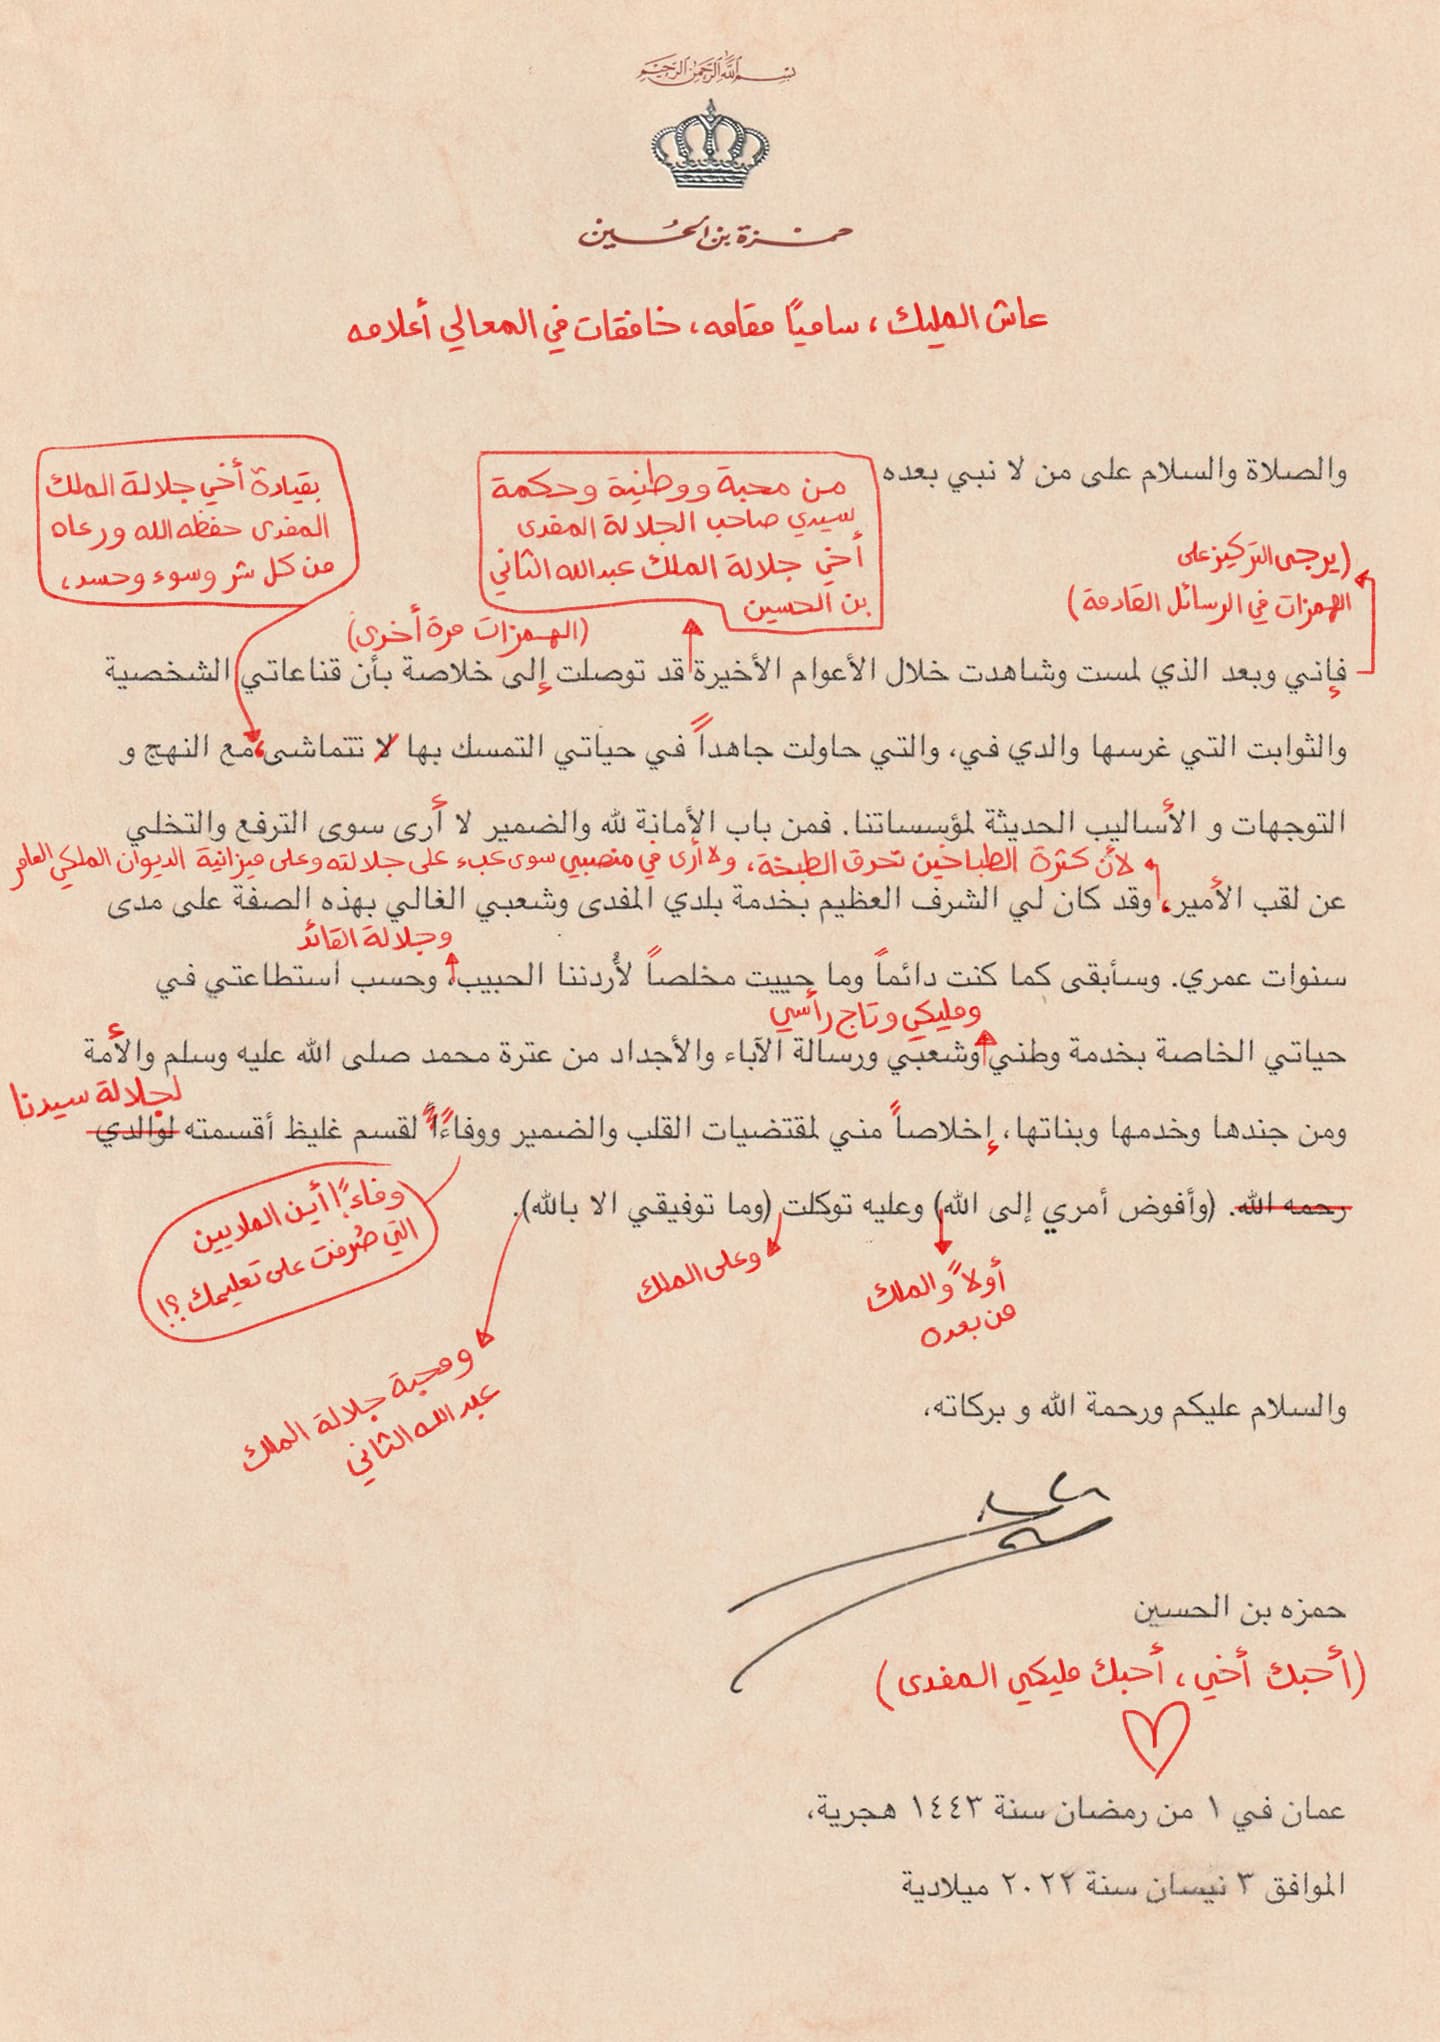 بسم الله الرحمن الرحيم
حمزة بن الحسين
عاش المليك، ساميًا مقامه، خافقات في المعالي أعلامه
والصلاة والسلام على من لا نبي بعده
من محبة ووطنية وحكمة
سيدي صاحب الجلالة المفدى
أخي جلالة الملك عبدالله الثاني
بن الحسين
بقيادة أخي جلالة الملك
المفدى حفظه الله ورعاه
من كل شر وسوء وحسد،
(يرجى التركيز على
الهمزات في الرسائل القادمة)
(الهمزات مرة أخرى)
فإنني وبعد الذي لمست وشاهدت خلال الأعوام الأخيرة قد توصلت إلى خلاصة بأن قناعاتي الشخصية
والثوابت التي غرسها والدي في، والتي حاولت جاهداً في حياتي التمسك بها لا تتماشى، مع النهج و
التوجهات و الأساليب الحديثة لمؤسساتنا. فمن باب الأمانة لله والضمير لا أرى سوى الترفع والتخلي
لأن كثرة الطباخين تحرق الطبخة، ولا أرى في منصبي سوى عبء على جلالته وعلى ميزانية الديوان الملكي العامر
عن لقب الأمير، وقد كان لي الشرف العظيم بخدمة بلدي المفدى وشعبي الغالي بهذه الصفة على مدى
وجلالة القائد
سنوات عمري. وسأبقى كما كنت دائماً وما حييت مخلصاً لأردننا الحبيب، وحسب استطاعتي في
ومليكي وتاج رأسي
حياتي الخاصة بخدمة وطني وشعبي ورسالة الآباء والأجداد من عترة محمد صلى الله عليه وسلم والأمة
لجلالة سيدنا
ومن جندها وخدمها وبناتها، إخلاصاً مني لمقتضيات القلب والضمير ووفاءاً لقسم غليظ أقسمته لوالدي
رحمه الله. (وأفوض أمري إلى الله) وعليه توكلت (وما توفيقي الا بالله).
وفاءً! أين الملايين
التي صُرفت على تعليمك؟!
وعلى الملك
أولاً والملك
من بعده
ومحبة جلالة الملك
عبدالله الثاني
والسلام عليكم ورحمة الله و بركاته،
حمزه بن الحسين
(أحبك أخي، أحبك مليكي المفدى)
عمان في ١ من رمضان سنة ١٤٤٣ هجرية،
الموافق ٣ نيسان سنة ٢٠٢٢ ميلادية